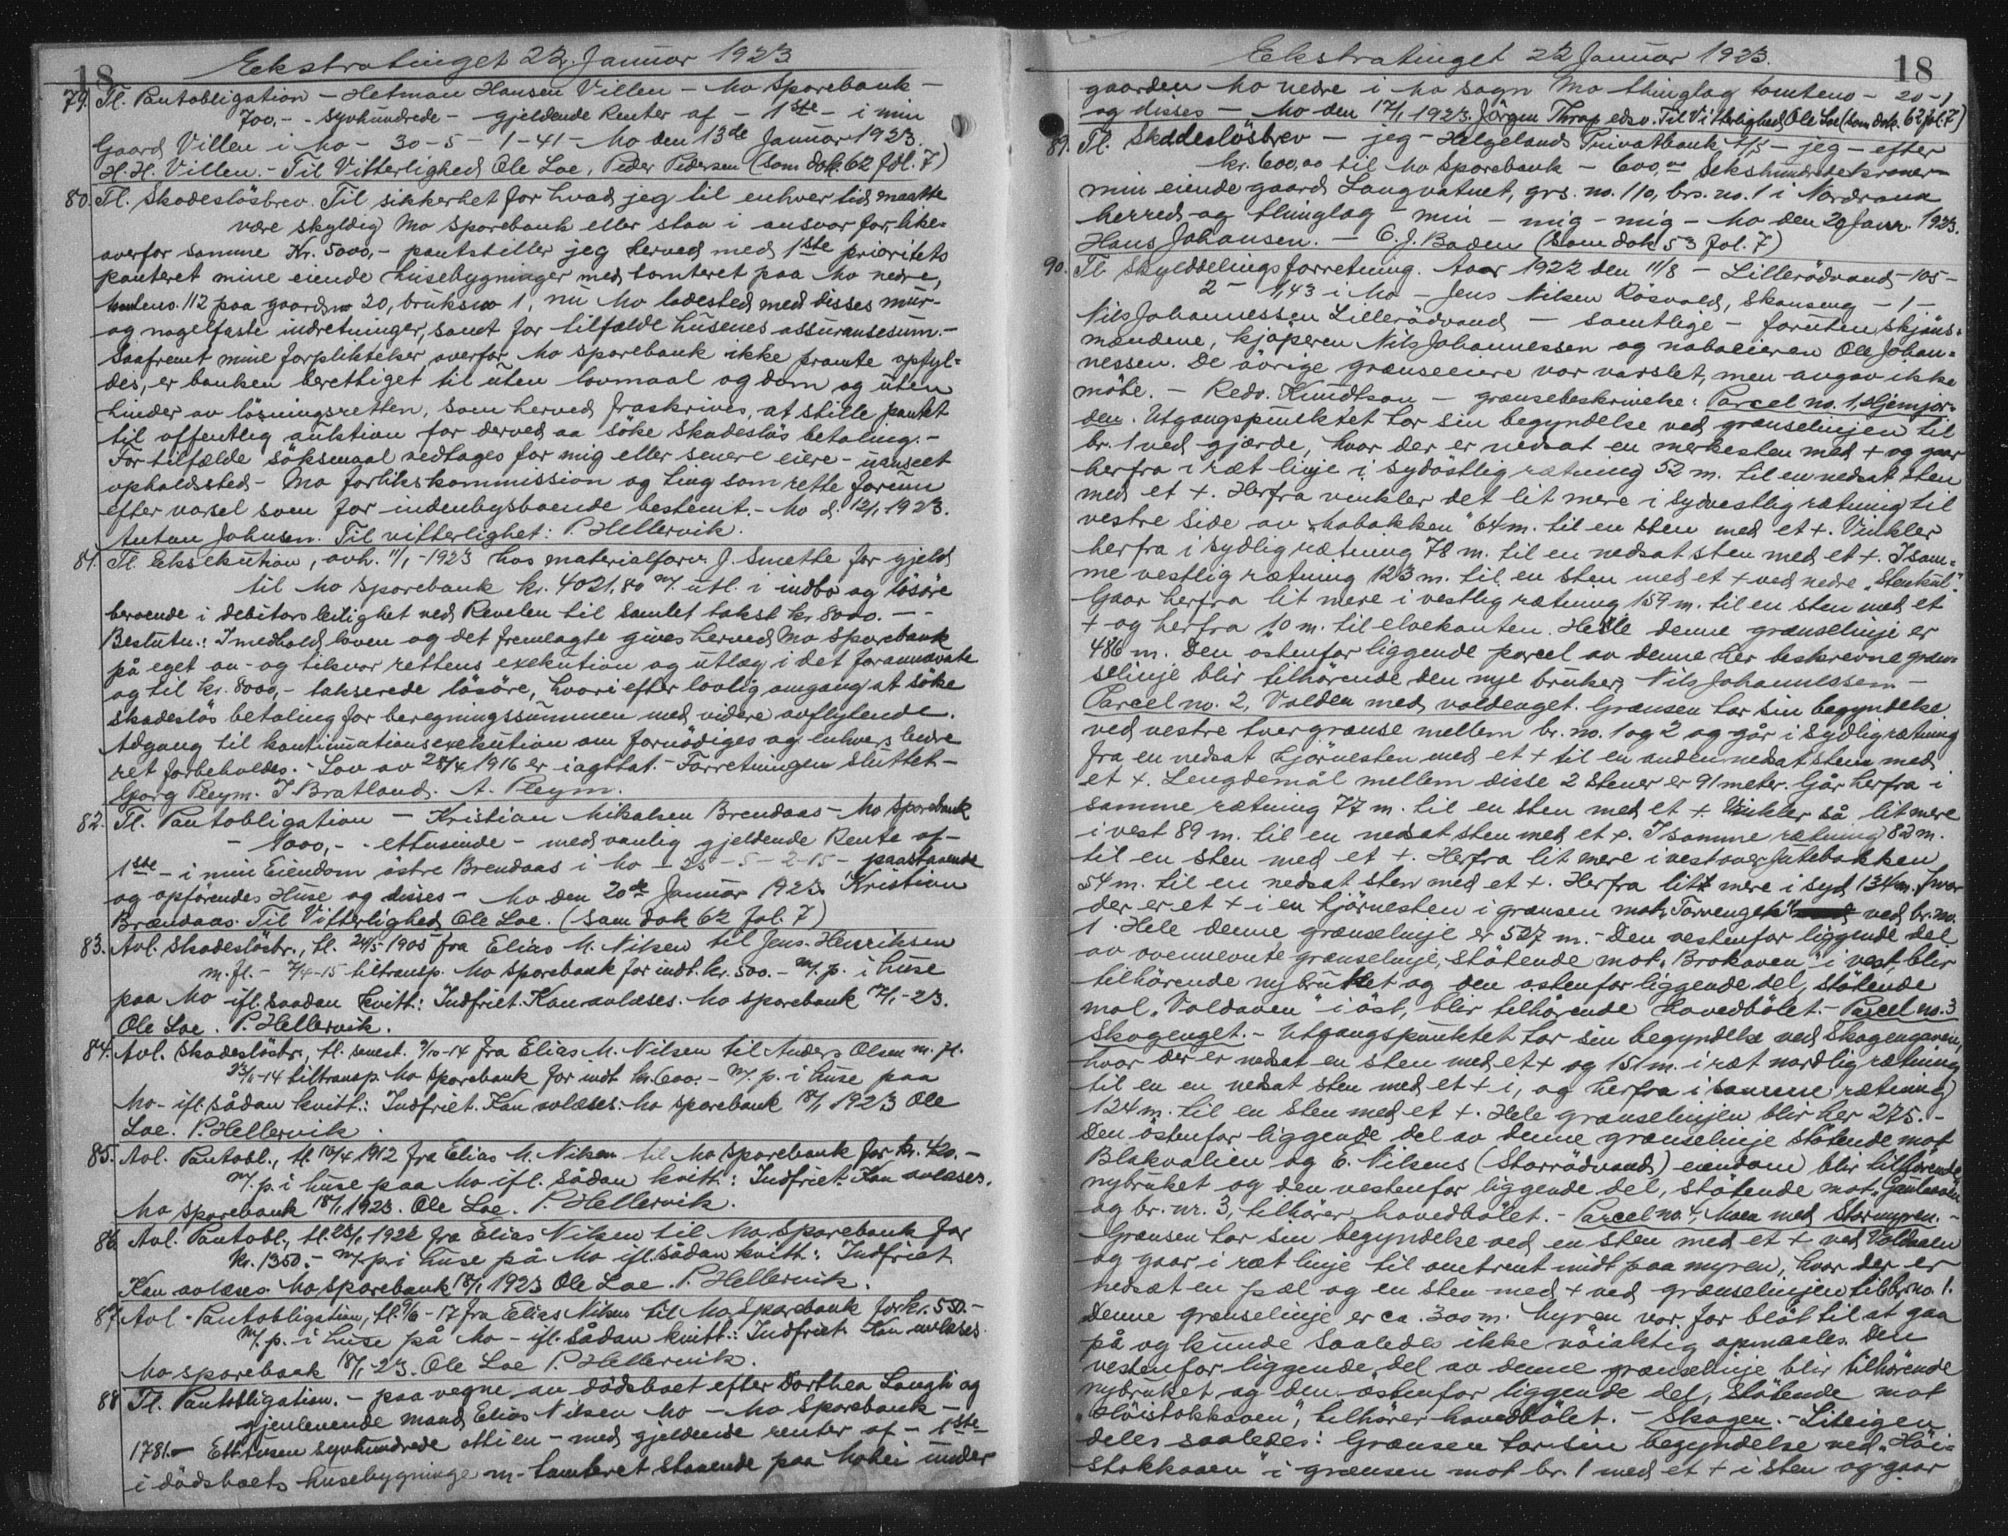 18
Ekstratinget 22. Januar 1923
79. Tl. Pantobligation – Hetman Hansen Villen – Mo Sparebank –
700,- - syvhundrede – gjeldende Renter af – 1ste – i min
Gaard Villen i Mo – 30 – 5 – 1-41 – Mo den 13de Januar 1923.
H. H. Villen. – Til Vitterlighed Ole Loe, Peder Pedersen (som dok. 62 fol. 7)
80. Tl. Skadesløsbrev. Til sikkerhet for hvad jeg til enhver tid maatte
være skyldig Mo Sparebank eller staa i ansvar for like-
overfor samme Kr. 5000,- pantstiller jeg herved med 1ste prioritets
panteret mine eiende husebygninger med tomteret paa Mo nedre,
tomteno. 112 paa gaardsno 20, bruksno 1, nu Mo ladested med disses mur-
og nagelfaste indretninger, samt for tilfælde husenes assuransesum. –
Saafremt mine forpliktelser overfor Mo Sparebank ikke promte opfyl-
des, er banken berettiget til uten lovmaal og dom og uten
hinder av løsningsretten, som herved fraskrives, at stille pantet
til offentlig auktion for derved aa søke skadesløs betaling. –
For tilfælde søksmaal vedtages for mig eller senere eiere – uanseet
opholdssted – Mo forlikskommission og ting som rette forum
efter varsel som for indenbysboende bestemt. – Mo d. 12/1 1923.
Anton Johnsen. Til vitterlighet: P. Hellervik.
81. Tl. Eksekution, avh. 11/1 – 1923 hos materialforv. J. Smette for gjeld
til Mo Sparebank kr. 4021,80 m/ utl. i indbo og løsøre
beroende i debitors leilighet ved Revelen til samlet takst kr. 8000. – –
Beslutn.: I medhold loven og det fremlagte gives herved Mo Sparebank
på eget an- og tilsvar rettens exekution og utlæg i det forannævnte
og til kr. 8000,- takserede løsøre, hvori efter lovlig omgang at søke
skadesløs betaling for beregningssummen med videre avflytende.
Adgang til kontinuationsexekution om fornødiges og enhvers bedre
ret forbeholdes. – Lov av 28/4 1916 er iagttat. – Forretningen sluttet –
Georg Pleym. J. Bratland. A. Pleym.
82. Tl. Pantobligation – Kristian Mikalsen Brendaas – Mo Sparebank
– 1000,- - ettusinde – med vanlig gjeldende Rente af –
1ste – i min Eiendom østre Brendaas i Mo – 25 – 5 – 2-15 – paastaaende
og opførendes Huse og disses – Mo den 20de Januar 1923 Kristian
Brændaas. Til Vitterlighed Ole Loe. (Sam dok 62 fol. 7)
83. Avl. Skadesløsbr., tl. 24/5 1905 fra Elias M. Nilsen til Jens Henriksen
m. fl. – 7/4-15 tiltransp. Mo Sparebank for indt. kr. 500. – m/. p. i huse
paa Mo ifl. saadan kvitt.: Indfriet. Kan avlæses. Mo Sparebank 17/1-23.
Ole Loe. P. Hellervik.
84. Avl. Skadesløsbr., tl. senest. 9/10-14 fra Elias M. Nilsen til Anders Olsen m. fl.
23/11-14 tiltransp. Mo Sparebank for indt kr. 600. – m/. p. i huse paa
Mo – ifl. sådan kvitt.: Indfriet. Kan avlæses. Mo Sparebank 18/1 1923 Ole
Loe. P. Hellervik.
85. Avl. Pantobl., tl. 10/4 1912 fra Elias M. Nilsen til Mo Sparebank for kr. 420. –
m/. p. i huse paa Mo ifl. sådan kvitt.: Indfriet. Kan avlæses.
Mo Sparebank 18/1 1923. Ole Loe. P. Hellervik.
86. Avl. Pantobl., tl. 23/1 1922 fra Elias Nilsen til Mo Sparebank for
kr. 1350. – m/. p. i huse på Mo ifl. sådan kvitt.: Indfriet
Kan avlæses Mo Sparebank 18/1 1923 Ole Loe. P. Hellervik.
87. Avl. Pantobligation, tl. 9/6-17 fra Elias Nilsen til Mo Sparebank for kr. 550. –
m/. p. i huse på Mo – ifl. sådan kvitt.: Indfriet Kan avlæses.
Mo Sparebank 18/1-23. Ole Loe P. Hellervik.
88 Tl. Pantobligation. – paa vegne av dødsboet efter Dorthea Langli og
gjenlevende mand Elias Nilsen Mo – Mo Sparebank –
1781. – Ettusen syvhundrede otti en – med gjeldende renter af – 1ste
i dødsboets husebygninge m. tomteret staaende paa Mohei under
Ekstratinget 22 Januar 1923.
18
gaarden Mo nedre i Mo sogn Mo thinglag tomteno – 20-1
og disses – Mo den 17/1 1923. Jørgen Thrap edsv. Til Vitterlighed Ole Loe (som dok. 62 fol. 7)
89. Tl. Skadesløsbrev – jeg – Helgelands Privatbank A/S – jeg – efter
kr. 600,00 til Mo Sparebank – 600,00 Sekshundredekroner –
min eiende gaard Langvatnet, grs. no. 110, brs. no. 1 i Nordrana
herred og thinglag – min – mig – mig – Mo den 20 Januar 1923.
Hans Johansen. – C. J. Baden (Som dok 53 fol. 7)
90. Tl. Skylddelingsforretning. Aar 1922 den 11/8 – Lillerødvand – 105 –
2 – 1,43 i Mo – Jens Nilsen Røsvold, Skanseng – 1 –
Nils Johannessen Lillerødvand – samtlige – foruten skjøns-
mændene, kjøperen Nils Johannessen og naboeieren Ole Johan-
nessen. De øvrige grænseeiere var varslet, men angav ikke
møte. – Redv. Knudtson – grænsebeskrivelse: Parcel no. 1, Hjemjor-
den. Utgangspunktet tar sin begyndelse ved grænselinjen til
br. 1 ved gjærde, hvor der er nedsat en merkesten med + og gaar
herfra i ræt linje i sydøstlig rætning 52 m. til en nedsat sten
med et +. Herfra vinkler det lit mere i sydvestlig rætning til
vestre side av „Mobakken" 64 m. til en sten med et +. Vinkler
herfra i sydlig rætning 78 m. til en nedsat sten med et +. I sam-
me vestlig rætning 123 m. til en sten med et + ved nedre „Stenkul"
Gaar herfra lit mere i vestlig rætning 159 m. til en sten med et
+ og herfra 10 m. til elvekanten. Hele denne grænselinje er
486 m. Den østenfor liggende parcel av denne her beskrevne græn-
selinje blir tilhørende den nye bruker, Nils Johannessen –
Parcel no. 2, Volden med voldenget. Grænsen tar sin begyndelse
ved vestre tvergrænse mellem br. no. 1 og 2 og går i sydlig rætning
fra en nedsat hjørnesten med et + til en anden nedsat sten med
et +. Lengdemål mellem disse 2 stener er 91 meter. Går herfra i
samme rætning 77 m. til en sten med et +. Vinkler så lit mere
i vest 89 m. til en nedsat sten med et +. I samme rætning 82 m.
til en sten med et +. Herfra lit mere i vest over Jutebakken
54 m. til en nedsat sten med et +. Herfra lit mere i syd 134 m. hvor
der er et + i en hjørnesten i grænsen mot „Torvenget" ved br. no.
1. Hele denne grænselinje er 527 m. – Den vestenfor liggende del
av ovennevnte grænselinje, støtende mot „Brokaven" i vest, blir
tilhørende nybruket og den østenfor liggende del, støtende
mot „Voldaven" i øst, blir tilhørende hovedbølet. – Parcel no. 3
Skogenget. – Utgangspunktet tar sin begyndelse ved Skogengaven,
hvor der er nedsat en sten med et + og 151 m. i ræt nordlig rætning
til en en nedsat sten med et + i, og herfra i samme rætning
124 m. til en sten med et +. Hele grænselinjen blir her 275. –
Den østenfor liggende del av denne grænselinje støtende mot
Blakvalien og E. Nilsens (Storrødvands) eiendom blir tilhørende
nybruket og den vestenfor liggende del, støtende mot
og br. nr. 3, tilhører hovedbølet. – Parcel no. 4, Moen med Stormyren. –
Grænsen tar sin begyndelse ved en sten med et + ved Voldaven
og gaar i ræt linje til omtrent midt paa myren, hvor der er
nedsat en pæl og en sten med + ved grænselinjen til br. no. 1.
Denne grænselinje er ca. 300 m. Myren var for bløt til at gaa
på og kunde saaledes ikke nøiaktig opmaales. Den
vestenfor liggende del av denne grænselinje blir tilhørende
nybruket og den østenfor liggende del, støtende mot
„Høistokkaven", tilhører hovedbølet. – Skogen. – Liteigen
deles saaledes: Grænsen tar sin begyndelse ved „Høi-
stokkaven" i grænsen mot br. 1 med et + i sten og gaar